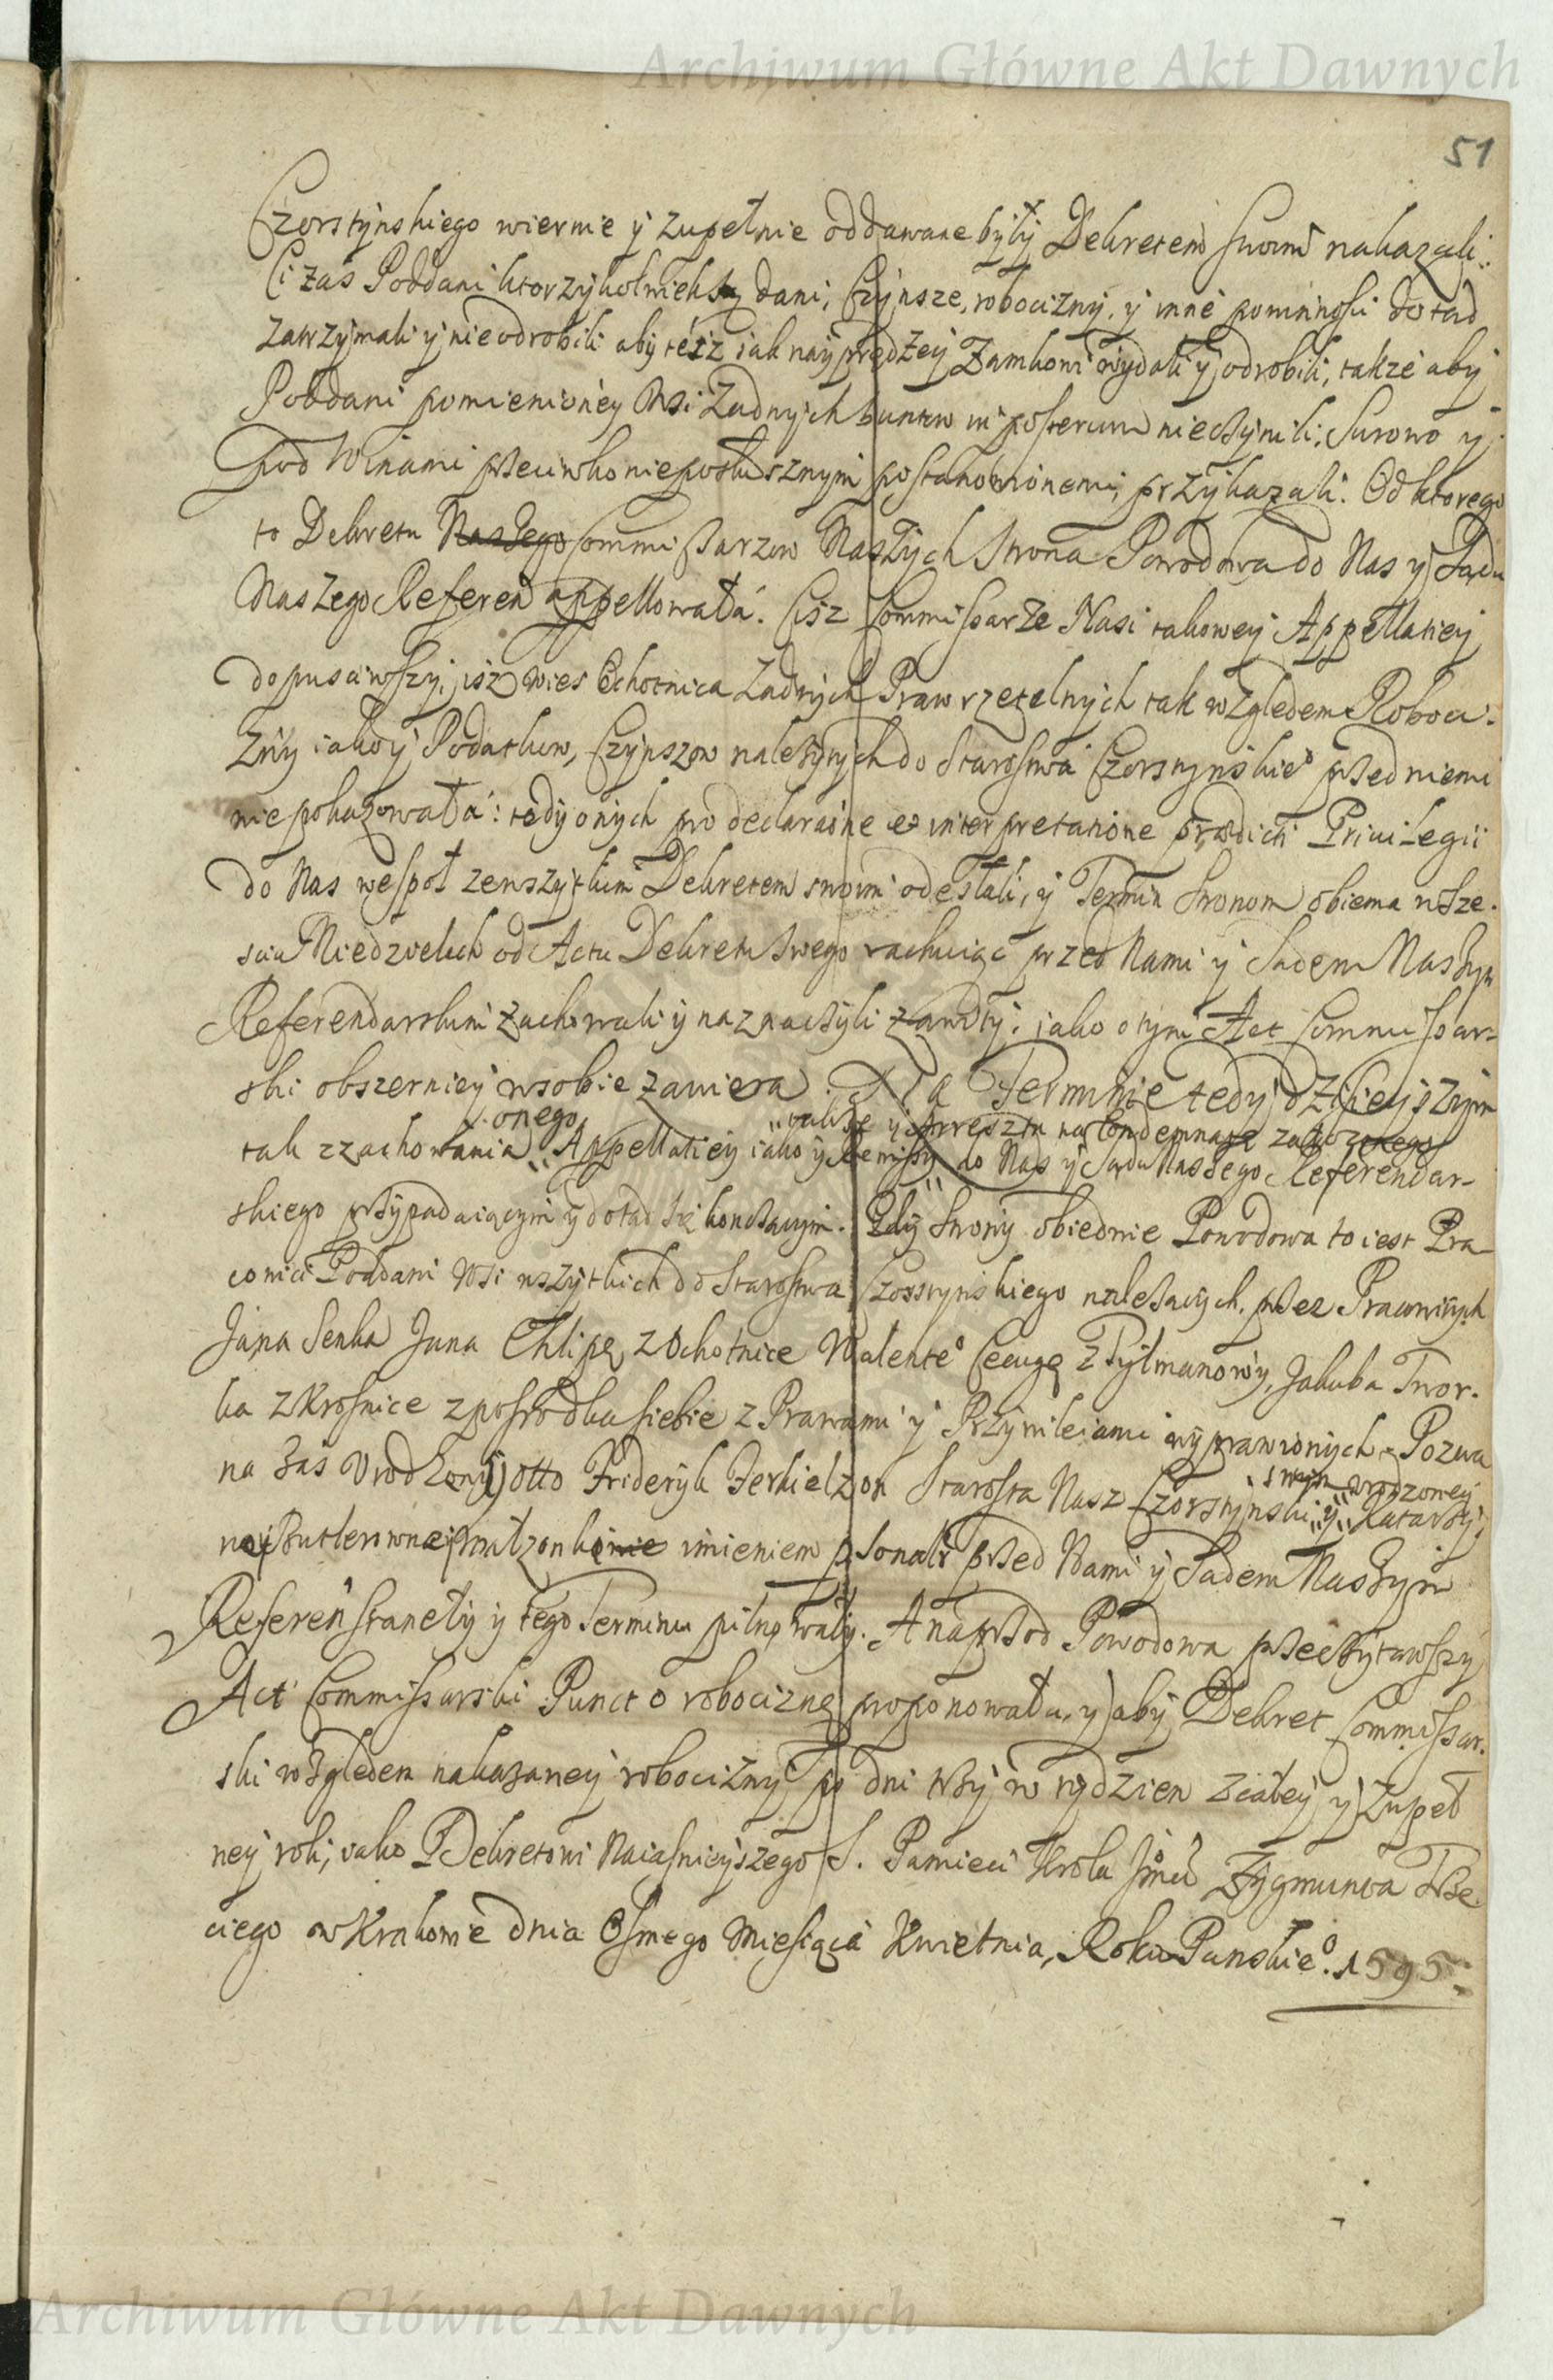 Archiwum Główne Akt Dawnych
51
Czorstynskiego wiernie y zupełnie oddawane były Dekretem swoim nakazali.
Ci zas Poddani ktorzykolwiek dani, Czynsze, robocizny, y inne powinnosci dotad
zatrzymali y nieodrobili aby tesz iak nayprędzey Zamkowi wydali y odrobili, takze aby
Poddani pomienioney Wsi Zadnych buntow in posterum nieczynili, Surowo y
pod Winami przeciwko nieposłusznym postanowionemi, przykazali. Od ktorego
to Dekretu Naszego Commissarzow Naszych Strona Powodowa do Nas y Sądu
Naszego Referen appellowała. Cisz Commissarze Nasi takowey Appellatiey
dopusciwszy, isz wies Ochotnica Zadnych Praw rzetelnych tak względem Roboci-
zny iako y Podatkow, Czynszow nalezytych do Starostwa Czorstynskieo przed niemi
niepokazowała: tedy onych pro declaraōne et interpretatione prædicti Privilegii
do Nas wespoł zewszytkim Dekretem swoim odesłali, y Termin Stronom obiema wSze-
sciu Niedzielach od Actu Dekretu swego rachuiąc przed Nami y Sądem Naszym
Referendarskim zachowali y naznaczyli zawity. iako o tym Act Commissar-
ski obszerniey wsobie zawiera. Na Terminie tedy dzisieyszym
onego
tak zzachowania Appellatiey iako y Remissy do Nas y Sądu Naszego Referendar-
skiego przypadaiącym y dotad się konczącym. Gdy Strony obiedwie Powodowa to iest Pra-
cowici Poddani Wsi wszytkich do Starostwa Czorstynskiego nalezących, przez Pracowitych
Jana Senka Jana Chlipę z Ochotnice Walenteo Cecugę z Tylmanowy, Jakuba Twor-
ka z Krosnice zposrodka siebie z Prawami y Przywileiami wyprawionych. Pozwa-
na zas Urodzony Otto Friderych Felkielzon Starosta Nasz Czorstynski y Katarzy-
swym urodzoney
ney Butlerowney małzonki imieniem psonalr przed Nami y Sądem Naszym
Referen stanęły y tego Terminu pilnowały. A naprzod Powodowa przeczytawszy
Act Commissarski Punct o robociznę proponowała, y aby Dekret Commissar-
ski względem nakazaney robocizny po dni trzy w tydzien zcałey y zupeł-
ney roli, iako Dekretowi Naiasnieyszego S. Pamieci Krola Jmci Zygmunta Trze-
ciego w Krakowie dnia Osmego Miesiąca Kwietnia, Roku Panskieo. 1595.
Archiwum Główne Akt Dawnych